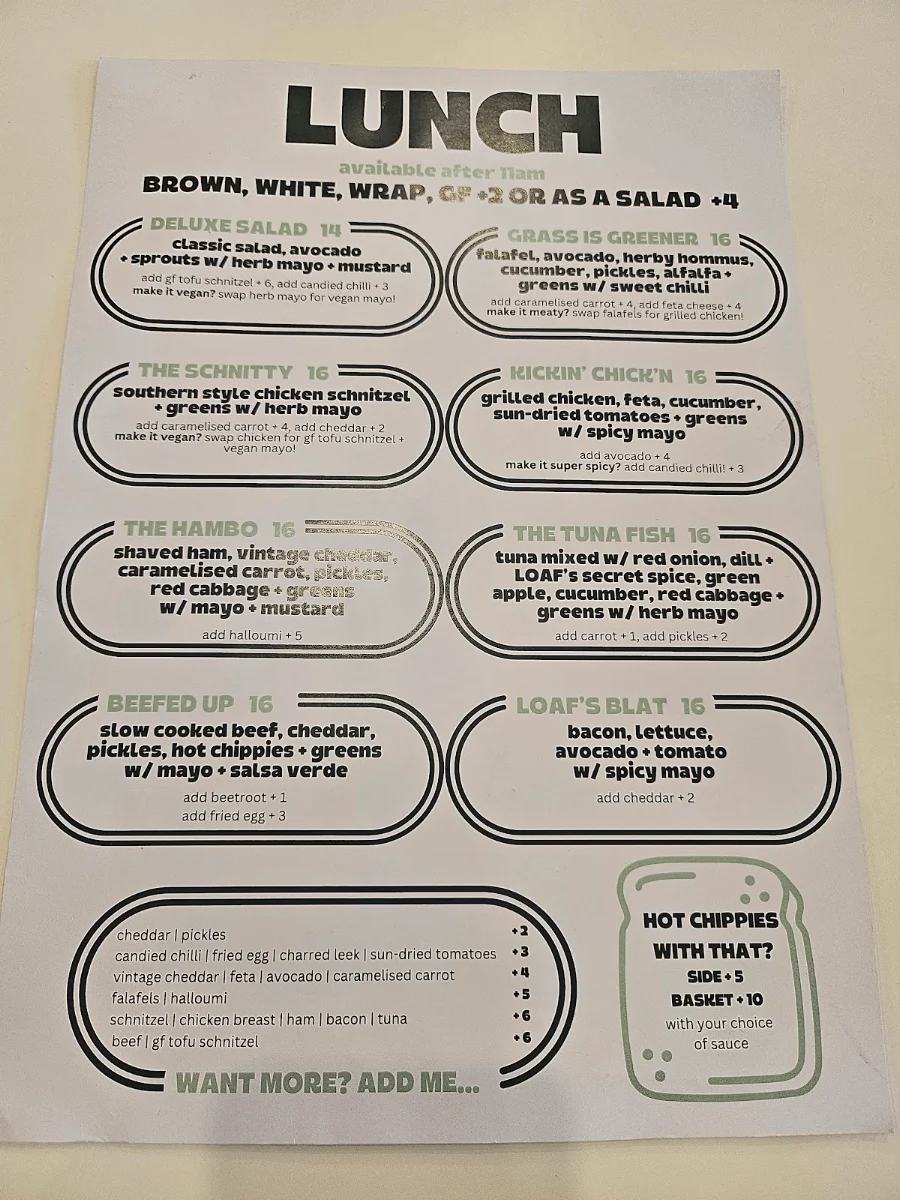 LUNCH
available after 11am
BROWN, WHITE, WRAP, GF +2 OR AS A SALAD +4
DELUXE SALAD 14
classic salad, avocado
+ sprouts w/ herb mayo + mustard
add gf tofu schnitzel + 6, add candied chilli + 3
make it vegan? swap herb mayo for vegan mayo!
GRASS IS GREENER 16
falafel, avocado, herby hommus,
cucumber, pickles, alfalfa +
greens w/ sweet chilli
add caramelised carrot + 4, add feta cheese + 4
make it meaty? swap falafels for grilled chicken!
THE SCHNITTY 16
southern style chicken schnitzel
+ greens w/ herb mayo
add caramelised carrot + 4, add cheddar + 2
make it vegan? swap chicken for gf tofu schnitzel +
vegan mayo!
KICKIN' CHICK'N 16
grilled chicken, feta, cucumber,
sun-dried tomatoes + greens
w/ spicy mayo
add avocado + 4
make it super spicy? add candied chilli! + 3
THE HAMBO 16
shaved ham, vintage cheddar,
caramelised carrot, pickles,
red cabbage + greens
w/ mayo + mustard
add halloumi + 5
THE TUNA FISH 16
tuna mixed w/ red onion, dill +
LOAF's secret spice, green
apple, cucumber, red cabbage +
greens w/ herb mayo
add carrot + 1, add pickles + 2
BEEFED UP 16
slow cooked beef, cheddar,
pickles, hot chippies + greens
w/ mayo + salsa verde
add beetroot + 1
add fried egg + 3
LOAF'S BLAT 16
bacon, lettuce,
avocado + tomato
w/ spicy mayo
add cheddar + 2
cheddar | pickles +2
candied chilli | fried egg | charred leek | sun-dried tomatoes +3
vintage cheddar | feta | avocado | caramelised carrot +4
falafels | halloumi +5
schnitzel | chicken breast | ham | bacon | tuna +6
beef | gf tofu schnitzel +6
WANT MORE? ADD ME...
HOT CHIPPIES
WITH THAT?
SIDE + 5
BASKET + 10
with your choice
of sauce